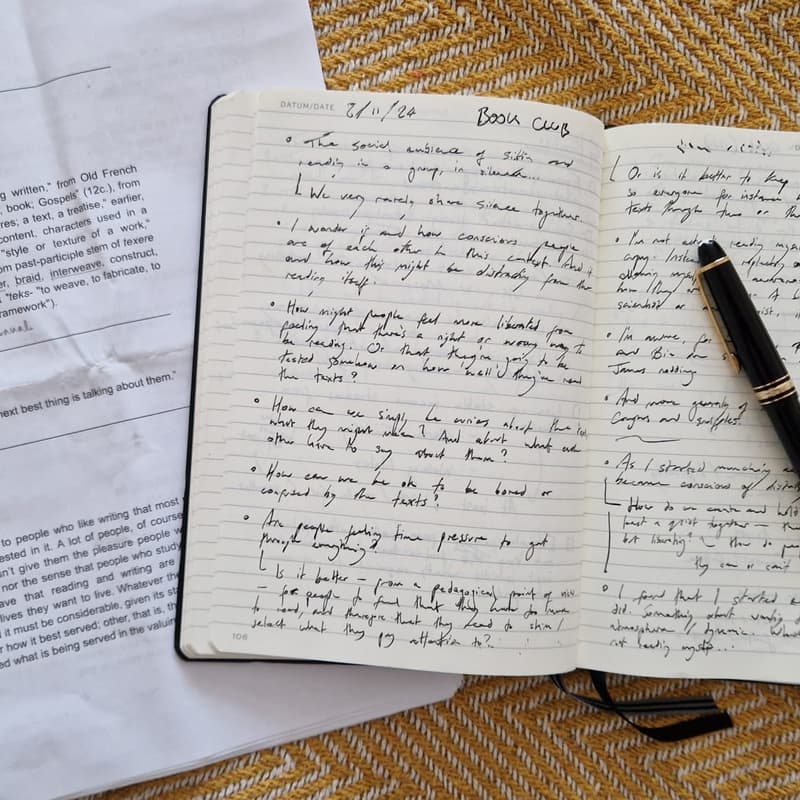 g written," from Old French
, book; Gospels" (12c.), from
res; a text, a treatise." earlier,
content, characters used in a
"style or texture of a work,"
om past-participle stem of texere
er, braid, interweave, construct,
"teks- "to weave, to fabricate, to
ramework").
next best thing is talking about them."
to people who like writing that most
ested in it. A lot of people, of course
n't give them the pleasure people w
nor the sense that people who study
ave that reading and writing are
lives they want to live. Whatever the
d it must be considerable, given its st
r how it best served; other, that is, th
ed what is being served in the valuin
DATUM/DATE 2/11/24 BOOK CLUB
The social ambience of sitting and
reading in a group, in silence...
We very rarely share silence together.
I wonder if and how conscious people
are of each other in this context. And if
and how this might be distracting from the
reading itself.
How might people feel more liberated from
feeling that there's a right or wrong way to
be reading. Or that they're going to be
tested somehow on how 'well' they've read
the texts?
How can we simply be curious about the texts,
what they might mean? And about what each
other have to say about them?
How can we be ok to be bored or
confused by the texts?
Are people feeling time pressure to get
through everything?
Is it better - from a pedagogical point of view
- for people to find that they have too much
to read, and therefore that they need to skim /
select what they pay attention to?
106
Or is it better to keep
so everyone for instance
texts through two or th
I'm not reading mys
how they
scientist or
and
James
And more generally of
As I started munching
become conscious of
How do we create and hold
but
they can or can't
I found that I started
did. Something about
atmosphere / dynamic.
not reading myself...